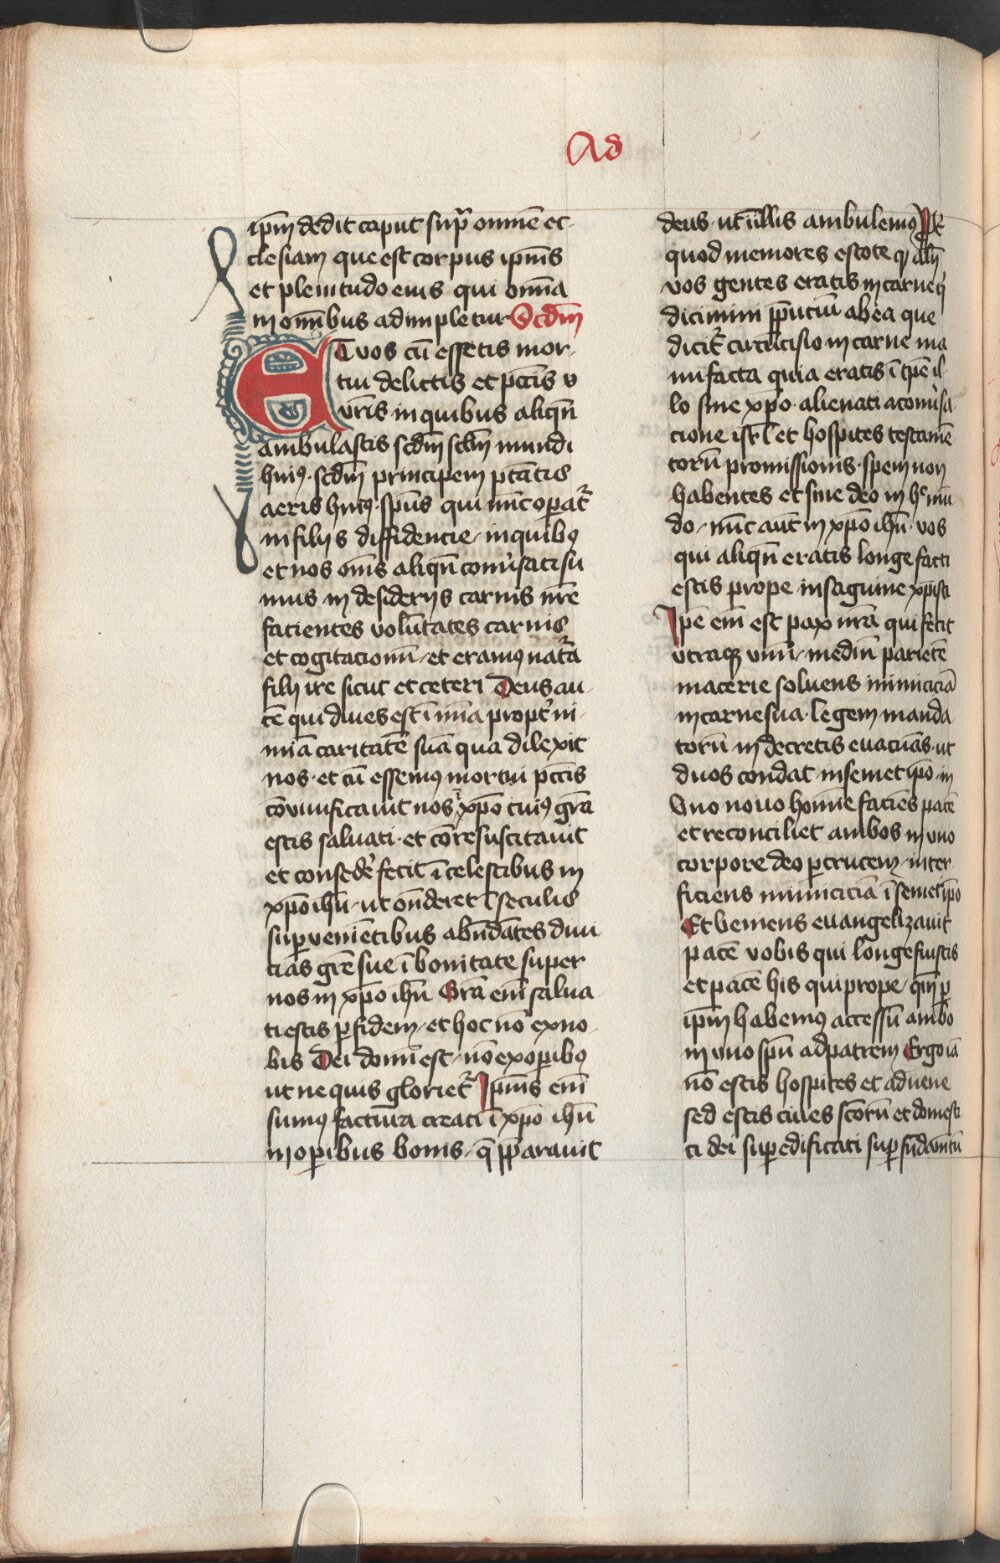 Ad
ip̄m dedit caput sup̄ omnē ec-
clesiam que est corpus ipīus
et plenitudo eius qui om̄ia
in om̄ibus adimpletur Scd̄m
ET vos cū essetis mor-
tui delictis et pctīs v
vr̄is in quibus aliqn̄
ambulastis scdm̄ sclm̄ mundi
huiꝰ · scdm̄ principem ptātis
aeris huiꝰ · spūs qui nūc opat᷑
in filijs diffidencie / in quibꝰ
et nos om̄s aliqn̄ conu̓sati su
mus in desiderijs carnis nr̄e
facientes volūtates carnis
et cogitacionū / et eramꝰ nat᷑a
filij ire sicut et ceteri Deus au-
tē qui diues est ī mīa propt̓ ni-
miā caritatē suā qua dilexit
nos · et cū essemꝰ mortui pctīs
cōuiuificauit nos ī xp̄o cuiꝰ grā
estis saluati · et cōresuscitauit
et consede̓ fecit ī celestibus in
xp̄o ihū · ut ondēret ī seculis
superveniētibus abūdātes diui
cias grē sue ī bonitate super
nos in xp̄o ihū Grā em̄ salua
ti estis ꝑ fidem / et hoc nō ex no-
bis Dei donū est / nō ex oꝑibꝰ
ut ne quis gloriet᷑ Ipīus em̄
sumꝰ factura creati ī xp̄o ihū
in oꝑibus bonis / q̄ pp̄arauit
deus · ut ī illis ambulemꝰ Pp̄t
quod memores estote qꝫ aliq̄
vos gentes eratis in carne q̄
dicimini pp̄uciū ab ea que
dicit᷑ circūcisio in carne ma
nufacta quia eratis ī tp̄e il
lo sine xp̄o · alienati a conu̓sa
cione isrl̄ et hospites testamē
torū promissionis · spem non
habentes et sine deo in hᶜ mū
do / nūc aūt in xp̄o ihū · vos
qui aliqn̄ eratis longe facti
estis prope in sāguine xp̄isti
Ip̄e em̄ est pax nrā qui fecit
utraqꝫ vnū / mediū parietē
macerie soluens inimiciciā
in carne sua · legem manda
torū in decretis euacuās · ut
duos condat in semetip̄o in
Vno nouo homīe faciēs pacē
et reconciliet ambos in vno
corpore deo ꝑ crucem / inter
ficiens inimiciciā ī semetip̄o
Et veniens euangelizauit
pacē vobis qui longe fuistis
et pacē his qui prope / qm̄ ꝑ
ip̄m habemꝰ accessū ambo
in vno spū ad patrem Ergo iā
nō estis hospites et aduene
sed estis ciues sc̄orū et domesti
ci dei suꝑedificati suꝑ fūdamtū